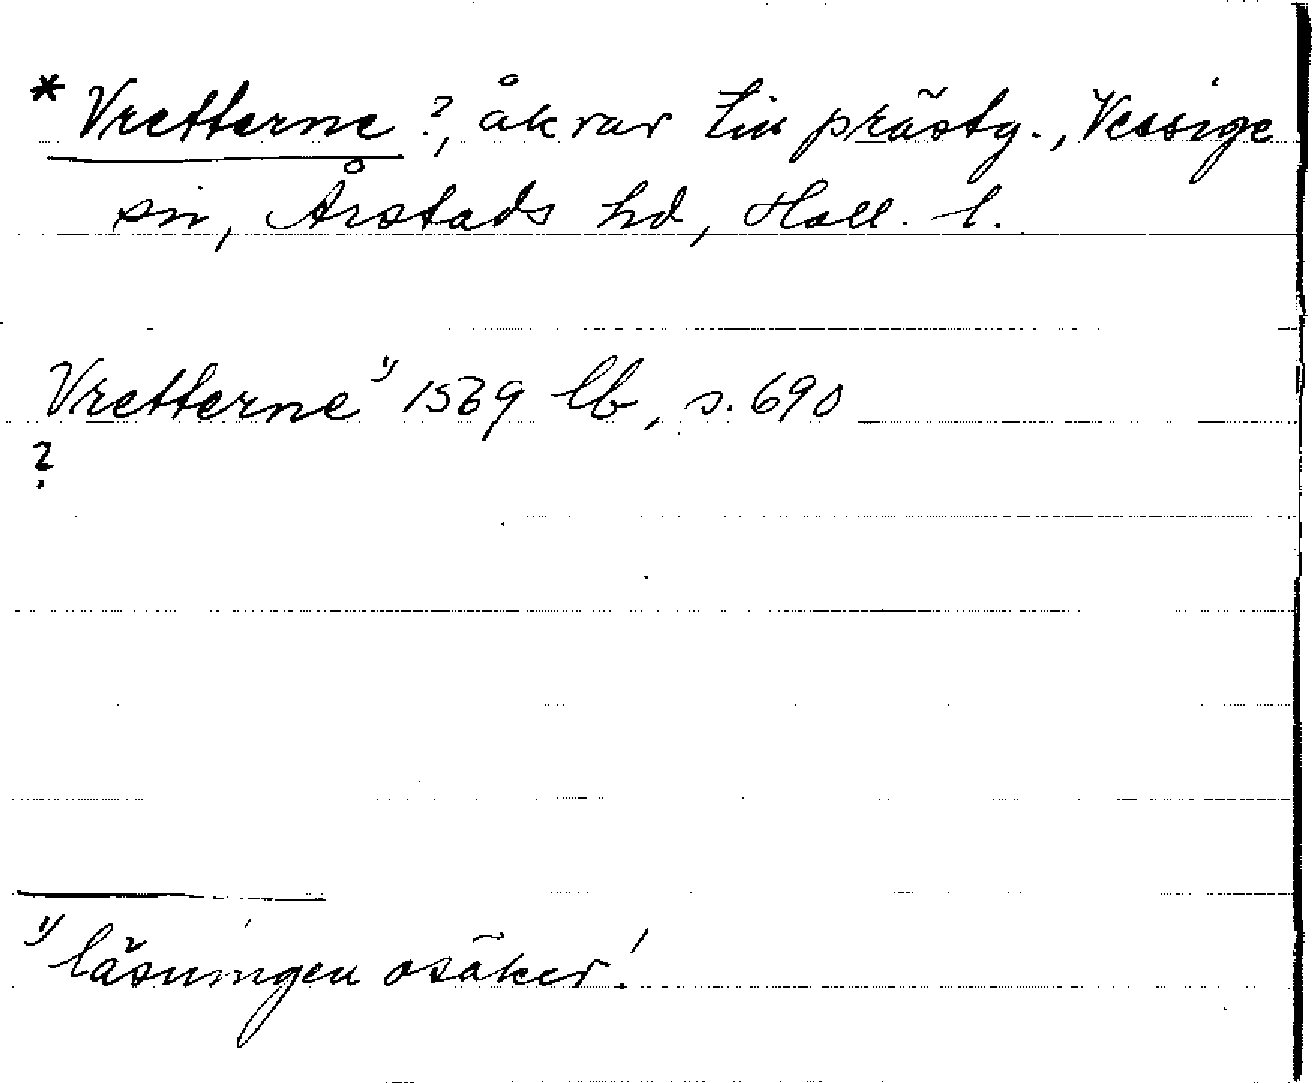 * Vretterne ?, åkrar till prästg., Vessige
sn, Årstads hd, Hall. l.
Vretterne 1) 1569 lb, s. 690
?
1) läsningen osäker!